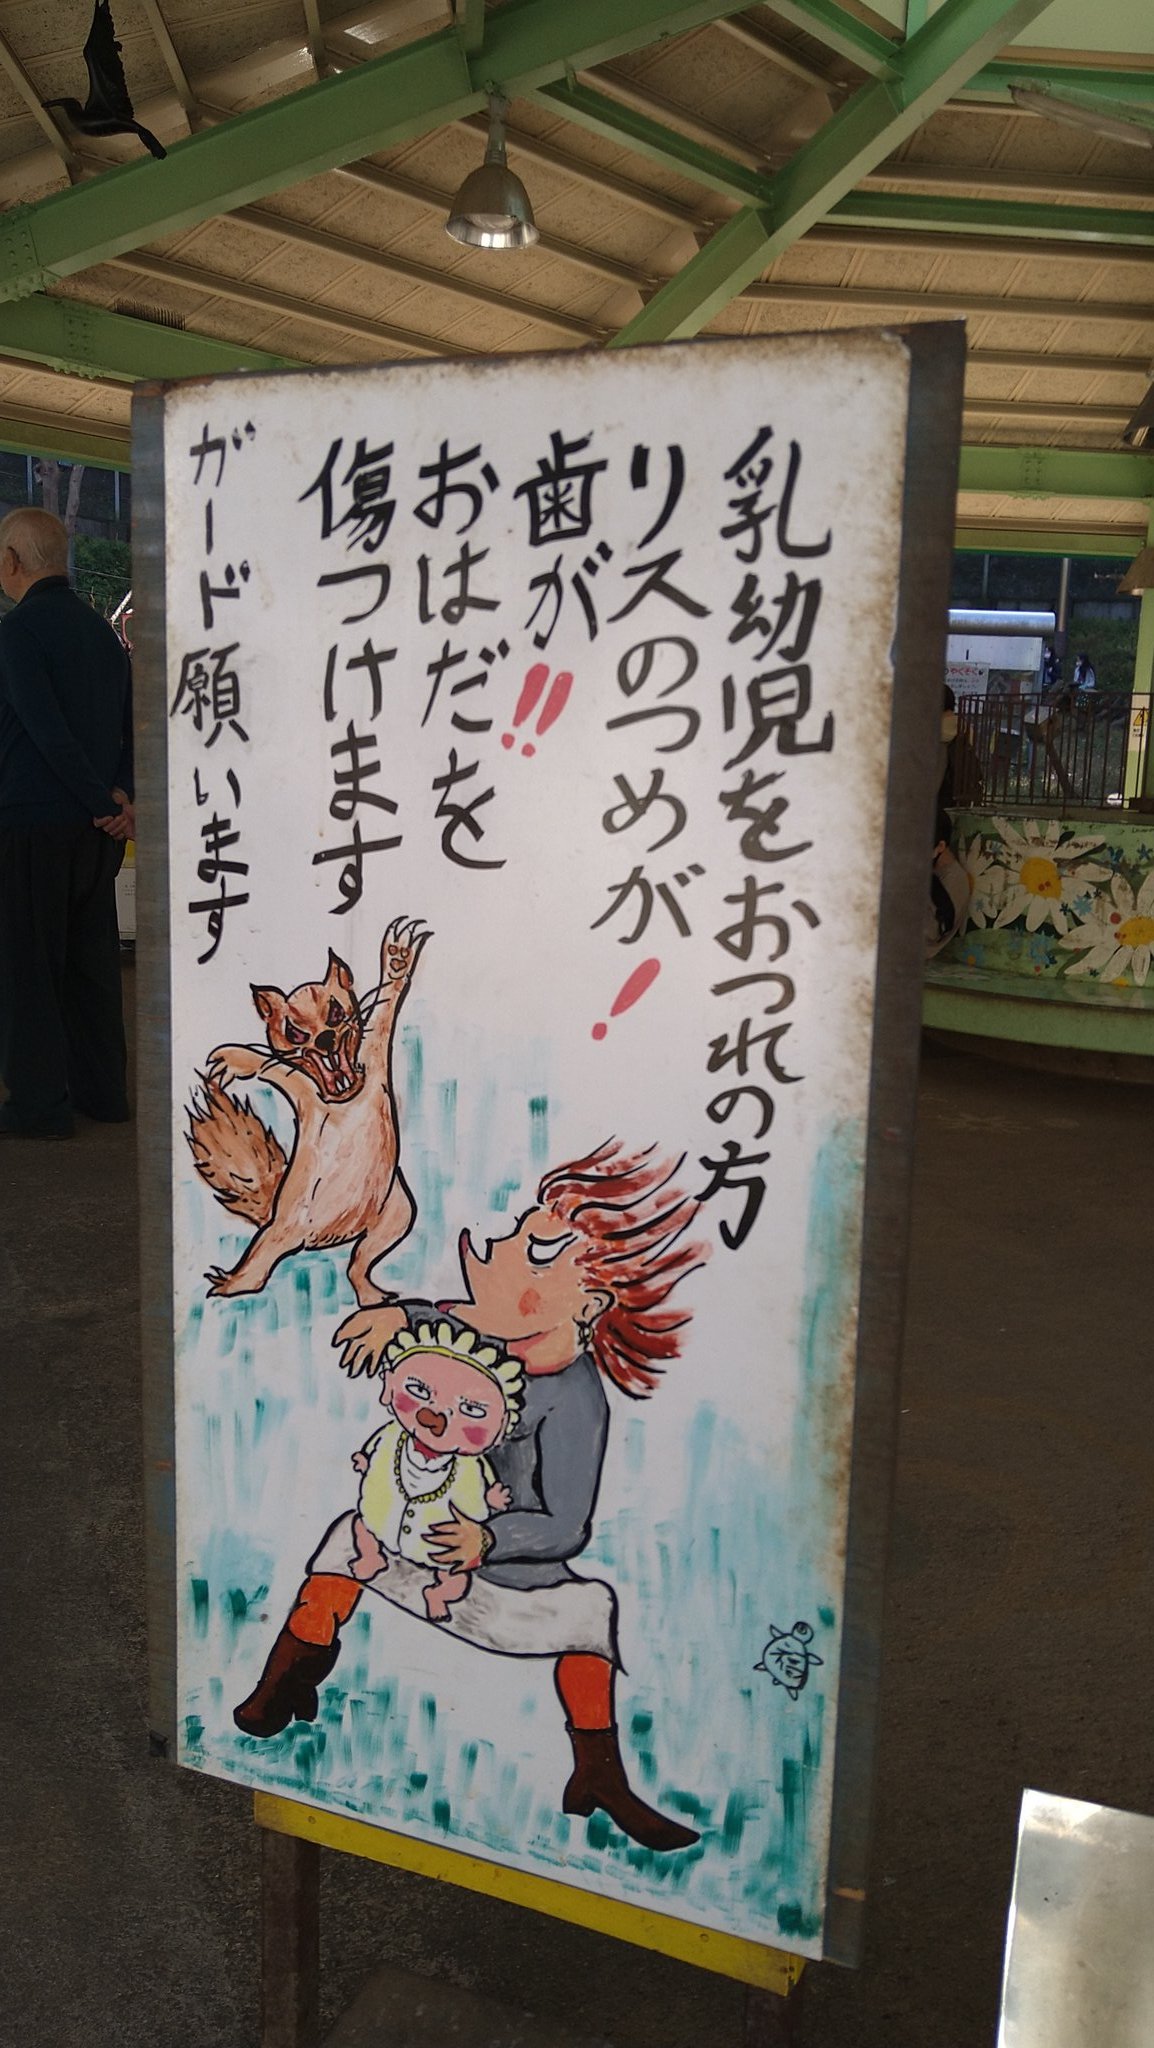 乳幼児をおつれの方
リスのつめが！
歯が!!
おはだを
傷つけます
ガード願います